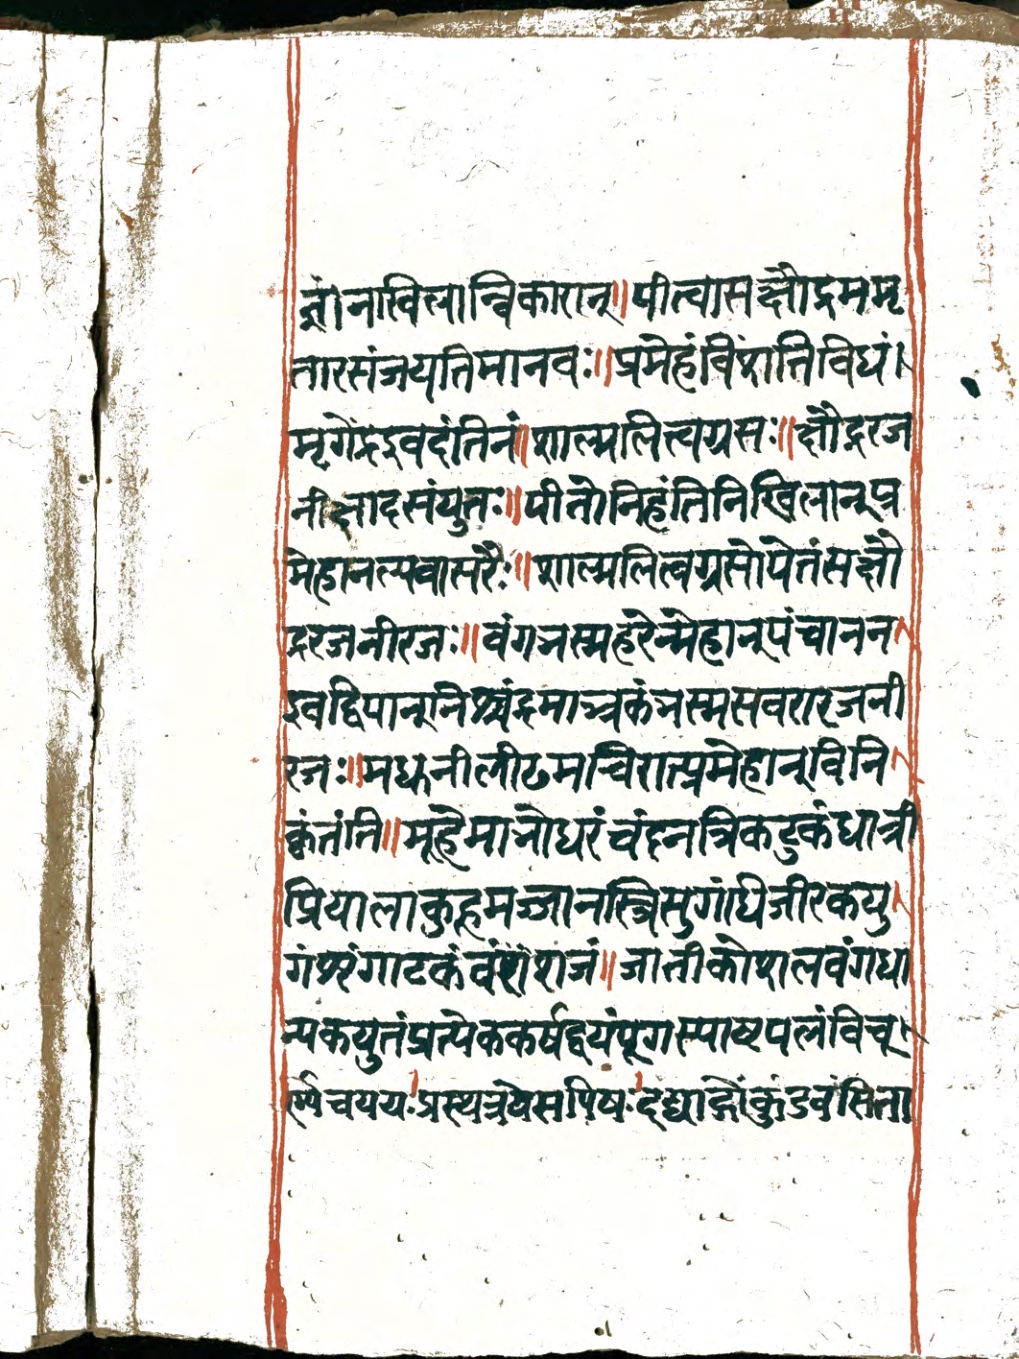 ज्ञांनाखिलान्विकारान्॥पीत्वासक्षौद्रममृ
तारसंजयतिमानवः॥प्रमेहंविंशतिविधं।
मृगेंद्रइवदंतिनं॥शाल्मलित्त्वग्रसः॥क्षौद्ररज
नीक्षादसंयुतः॥पीतोनिहंतिनिखिलान्प्र
मेहानल्पवासरैः॥शाल्मलित्वग्रसोपेतंसक्षौ
द्ररजनीरजः॥वंगभस्महरेन्मेहान्पंचानन
इवद्विपान्निश्चंद्रमाभ्रकंभस्मसवरारजनी
रजः॥मधुनीलीढमचिरात्प्रमेहान्विनि
कृंतंति॥मूहैमाभोधरंचंदनत्रिकटुकंधात्री
प्रियालाकुहमज्जानस्त्रिसुगंधिजीरकयु
गंशृंगाटकंवंशजं॥जातीकोशलवंगधा
न्यकयुतंप्रत्येककर्षद्वयंपूगस्याष्टपलंविचू
र्ण्यचपयःप्रस्थत्रयेसपिषःदद्या कुंडवंसिता